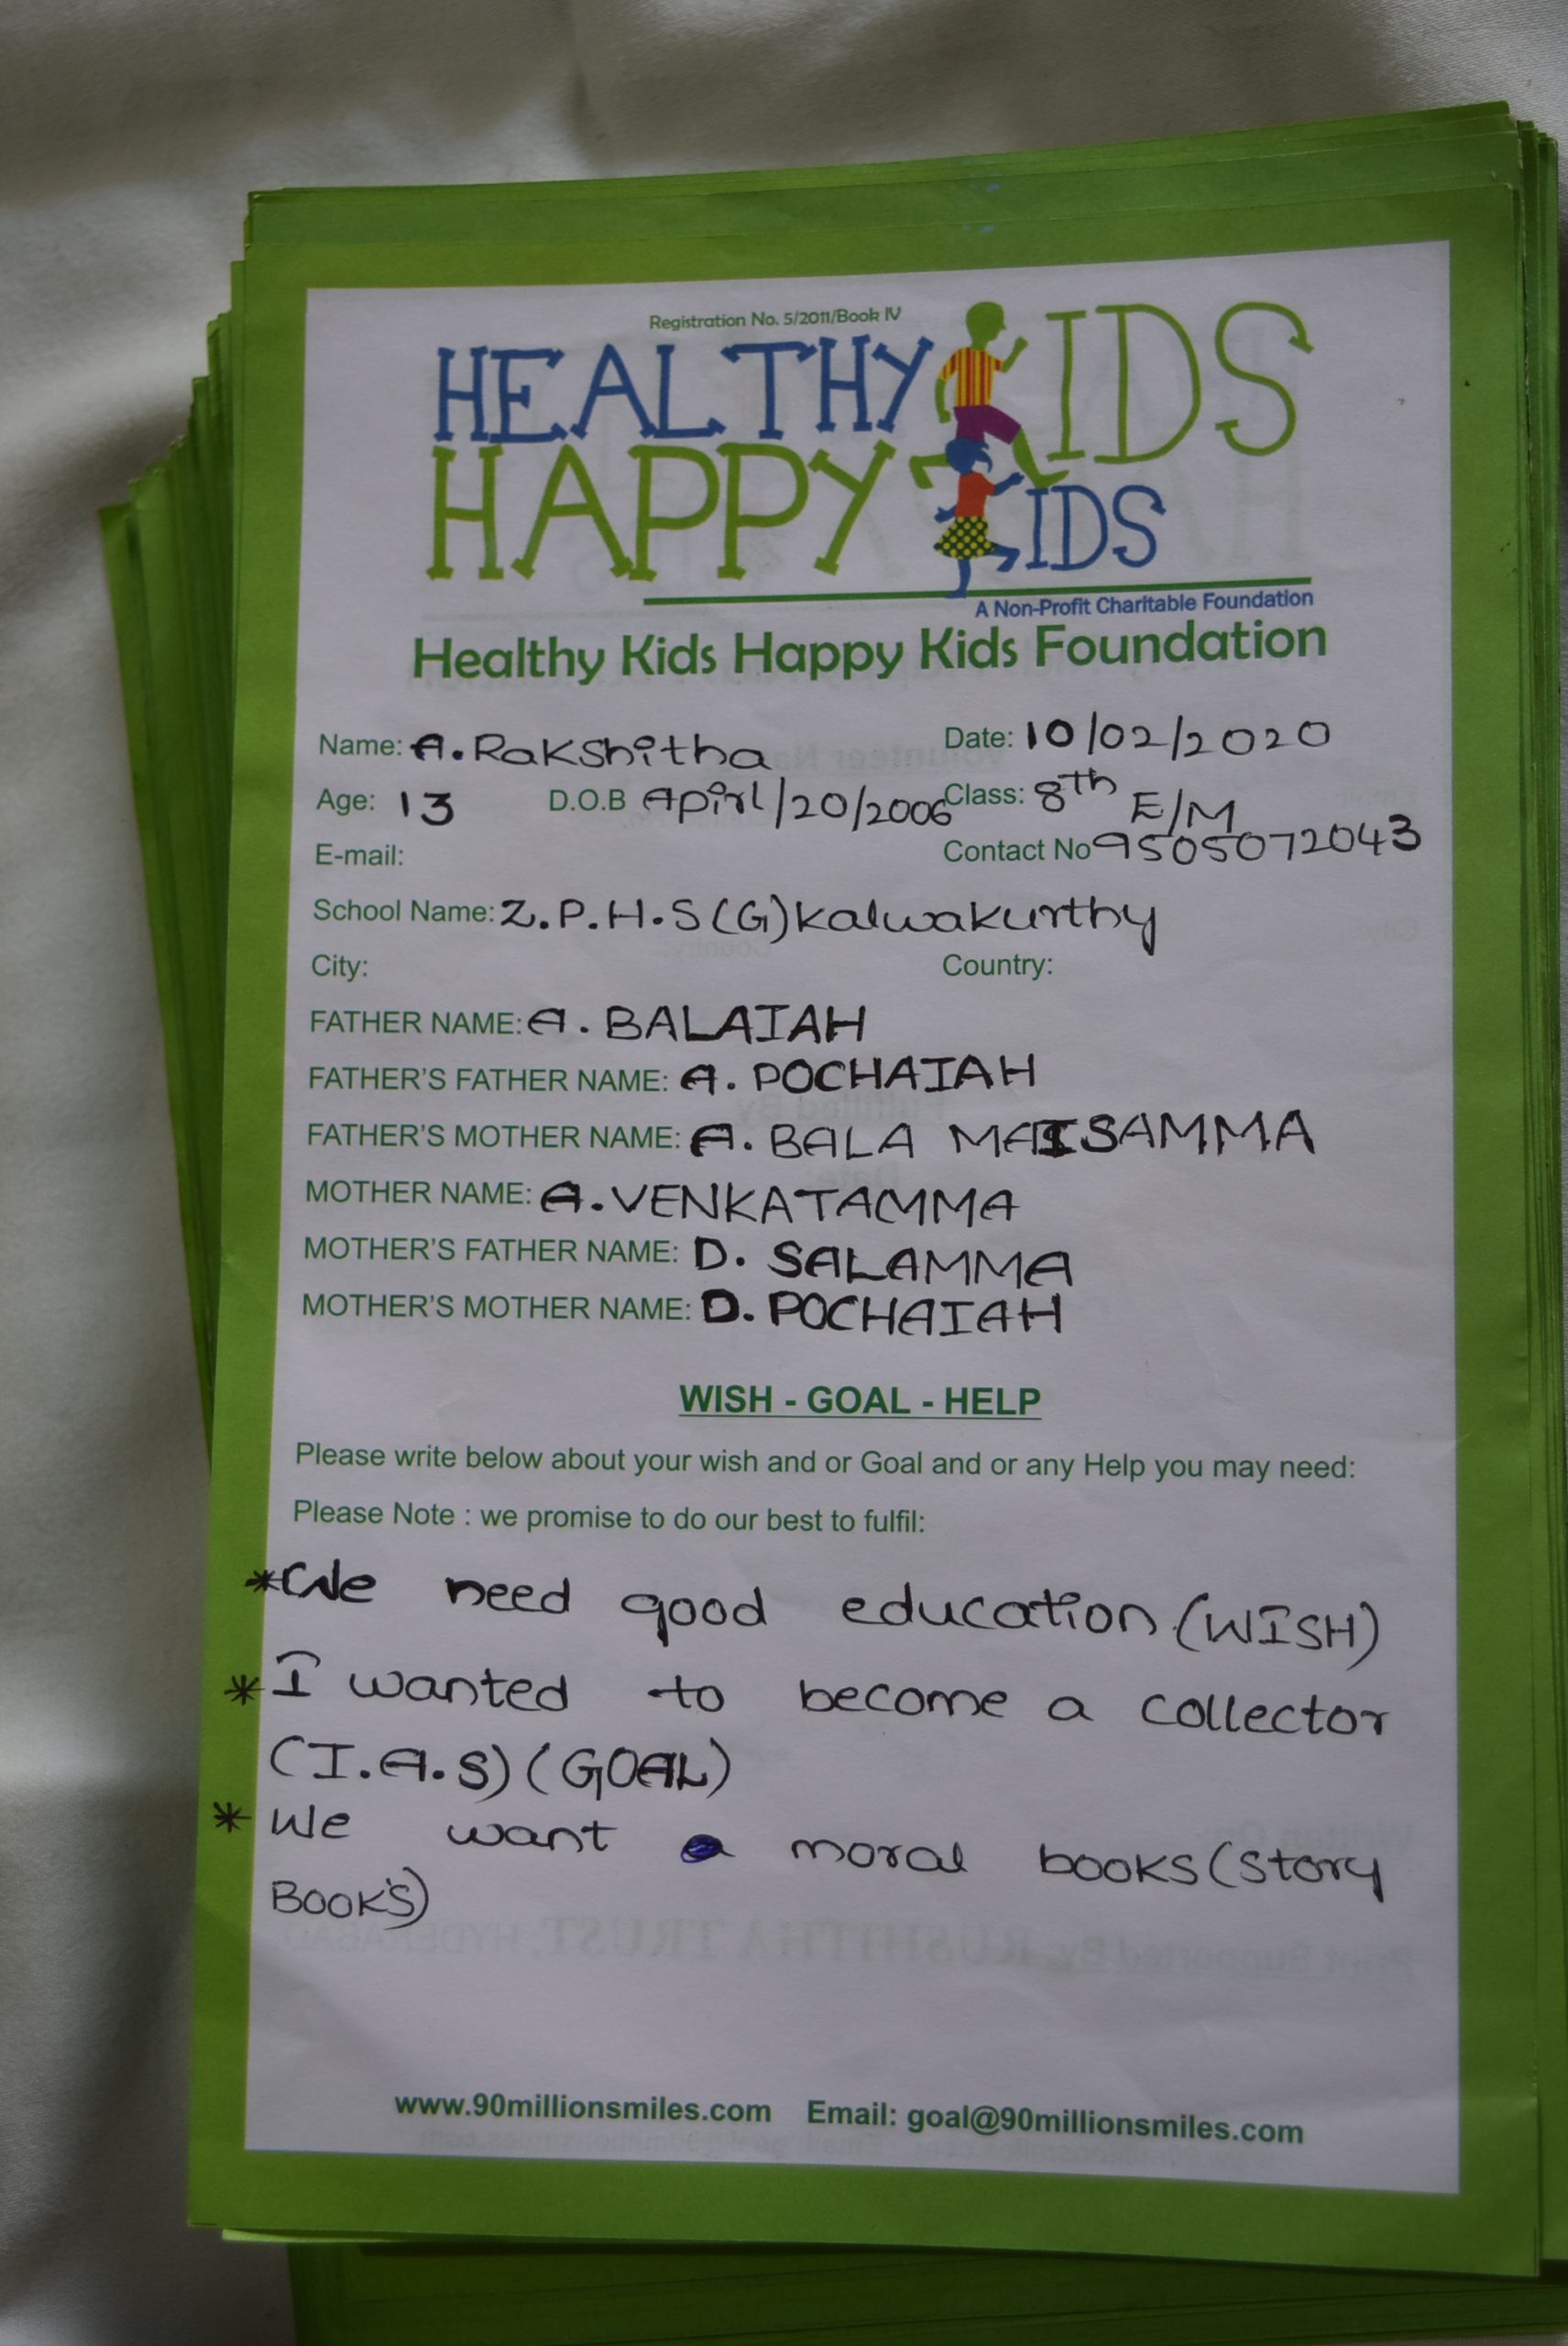 Registration No. 5/2011/Book IV
HEALTHY KIDS
HAPPY KIDS
A Non-Profit Charitable Foundation
Healthy Kids Happy Kids Foundation
Name: A.Rakshitha Date: 10/02/2020
Age: 13 D.O.B Apirl/20/2006 Class: 8th E/M
E-mail: Contact No 9505072043
School Name: Z.P.H.S(G)kalwakurthy
City: Country:
FATHER NAME: A. BALAIAH
FATHER'S FATHER NAME: A. POCHAIAH
FATHER'S MOTHER NAME: A. BALA MAISAMMA
MOTHER NAME: A.VENKATAMMA
MOTHER'S FATHER NAME: D. SALAMMA
MOTHER'S MOTHER NAME: D. POCHAIAH
WISH - GOAL - HELP
Please write below about your wish and or Goal and or any Help you may need:
Please Note : we promise to do our best to fulfil:
*We need good education (WISH)
*I wanted to become a collector
(I.A.S) (GOAL)
* We want a moral books (story
BOOK'S)
www.90millionsmiles.com Email: goal@90millionsmiles.com